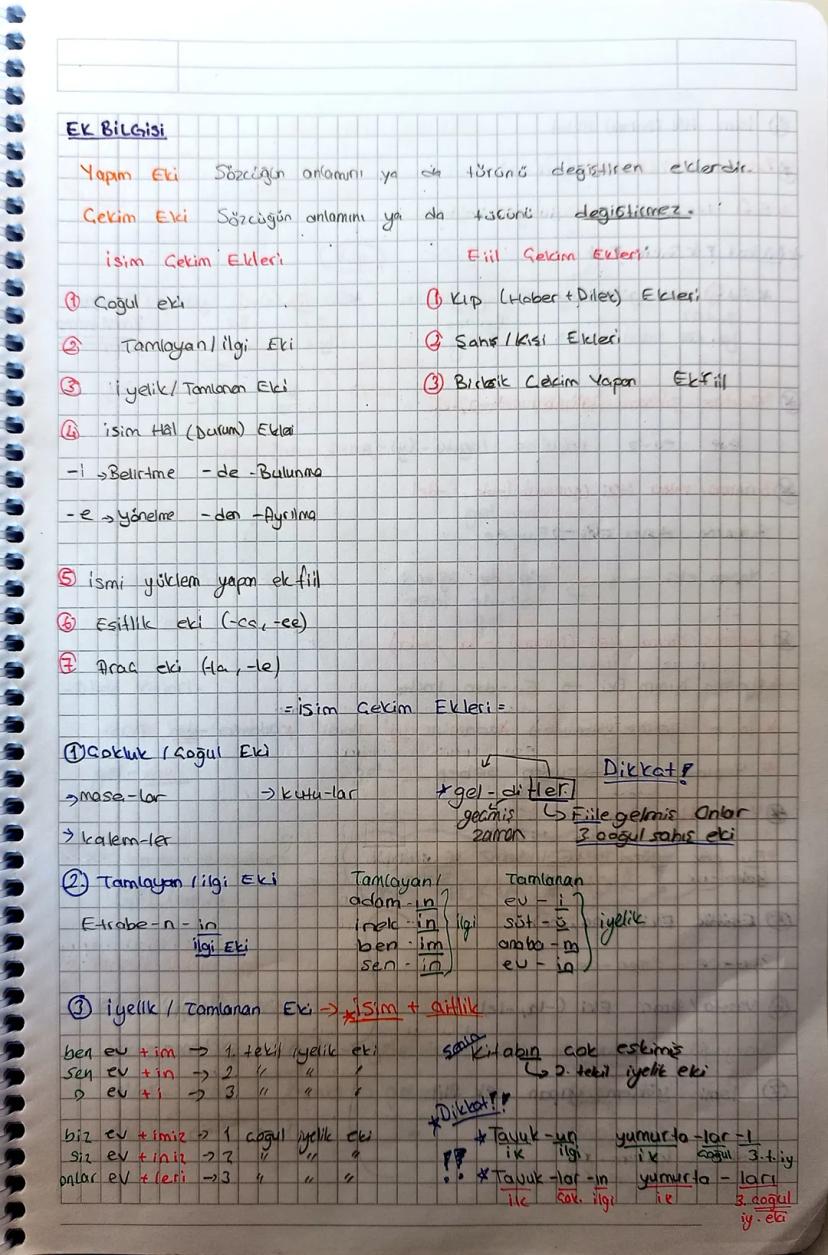 EK BİLGİSİ
Yapım Eki Sözcüğün anlamını ya da türünü değiştiren eklerdir.
Çekim Eki Sözcüğün anlamını ya da türünü değiştirmez.
İsim Çekim Ekleri Fiil Çekim Ekleri
① Çoğul eki ① Kip (Haber + Dilek) Ekleri
② Tamlayan / ilgi Eki ② Şahıs / Kişi Ekleri
③ iyelik / Tamlanan Eki ③ Birleşik Çekim Yapan Ekfiil
④ isim Hâl (Durum) Ekleri
-i → Belirtme -de - Bulunma
-e → yönelme -den - Ayrılma
⑤ ismi yüklem yapan ek fiil
⑥ Eşitlik eki (-ca, -ce)
⑦ Araç eki (-la, -le)
= isim Çekim Ekleri =
① Çokluk / Çoğul Eki Dikkat!
→ masa-lar → kutu-lar * gel - di ler
geçmiş zaman ↳ Fiile gelmiş Onlar
→ kalem-ler 3 çoğul şahıs eki
② Tamlayan / ilgi Eki Tamlayan / Tamlanan
adam - ın ev - i
E + araba-n - ın inek - in ilgi süt - ü iyelik
ilgi Eki ben - im araba - m
sen - in ev - in
③ iyelik / Tamlanan Eki → * isim + aitlik
ben ev + im → 1. tekil iyelik eki senin kitabın çok eskimiş
sen ev + in → 2 " " " ↳ 2. tekil iyelik eki
o ev + i → 3 " " "
* Dikkat!!
biz ev + imiz → 1 çoğul iyelik eki * Tavuk - un yumurta - lar - ı
siz ev + iniz → 2 " " " ik ilgi ik çoğul 3. t. iy
onlar ev + leri → 3 " " " !! * Tavuk - lar - ın yumurta - ları
ik çok. ilgi ik 3. çoğul
iy. eki